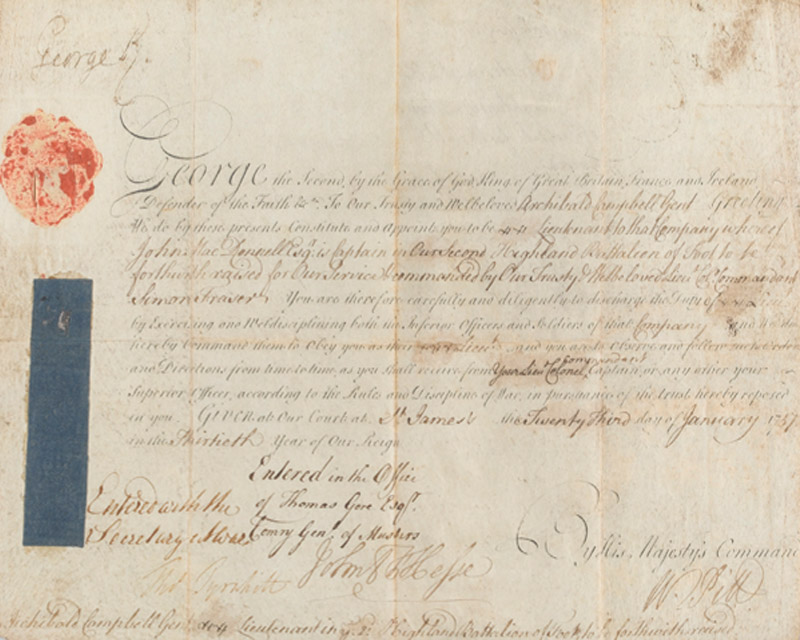 George R.
George the Second, by the Grace of God, King of Great Britain, France and Ireland
Defender of the Faith &c. To Our Trusty and Welbeloved Archibald Campbell Gent Greeting
We do by these presents Constitute and Appoint you to be Lieutenant to that Company whereof
John Mac Donnell Esqr. is Captain in Our Second Highland Battalion of Foot to be
forthwith raised for Our Service & commanded by Our Trusty & Welbeloved Lieut. Col. Commandant
Simon Fraser You are therefore carefully and diligently to discharge the Duty of Lieut.
by Exercising and Well disciplining both the Inferior Officers and Soldiers of that Company and We do
hereby Command them to Obey you as their Lieut. and you are to Observe and follow such Orders
and Directions from time to time as you shall receive from Your Lieut. Colonel Commandant Captain or any other your
Superior Officer, according to the Rules and Discipline of War, in pursuance of the trust hereby reposed
in you. GIVEN at Our Court at St. James's the Twenty Third day of January 1757
in the Thirtieth Year of Our Reign
Entered in the Office
of Thomas Gore Esqr.
Comry Genl. of Musters
Entered with the
Secretary at War
By His Majesty's Command
Tho. Tyrwhitt
W. Pitt
Archibald Campbell Gent. Lieutenant in Highland Battalion of Foot to be forthwith raised